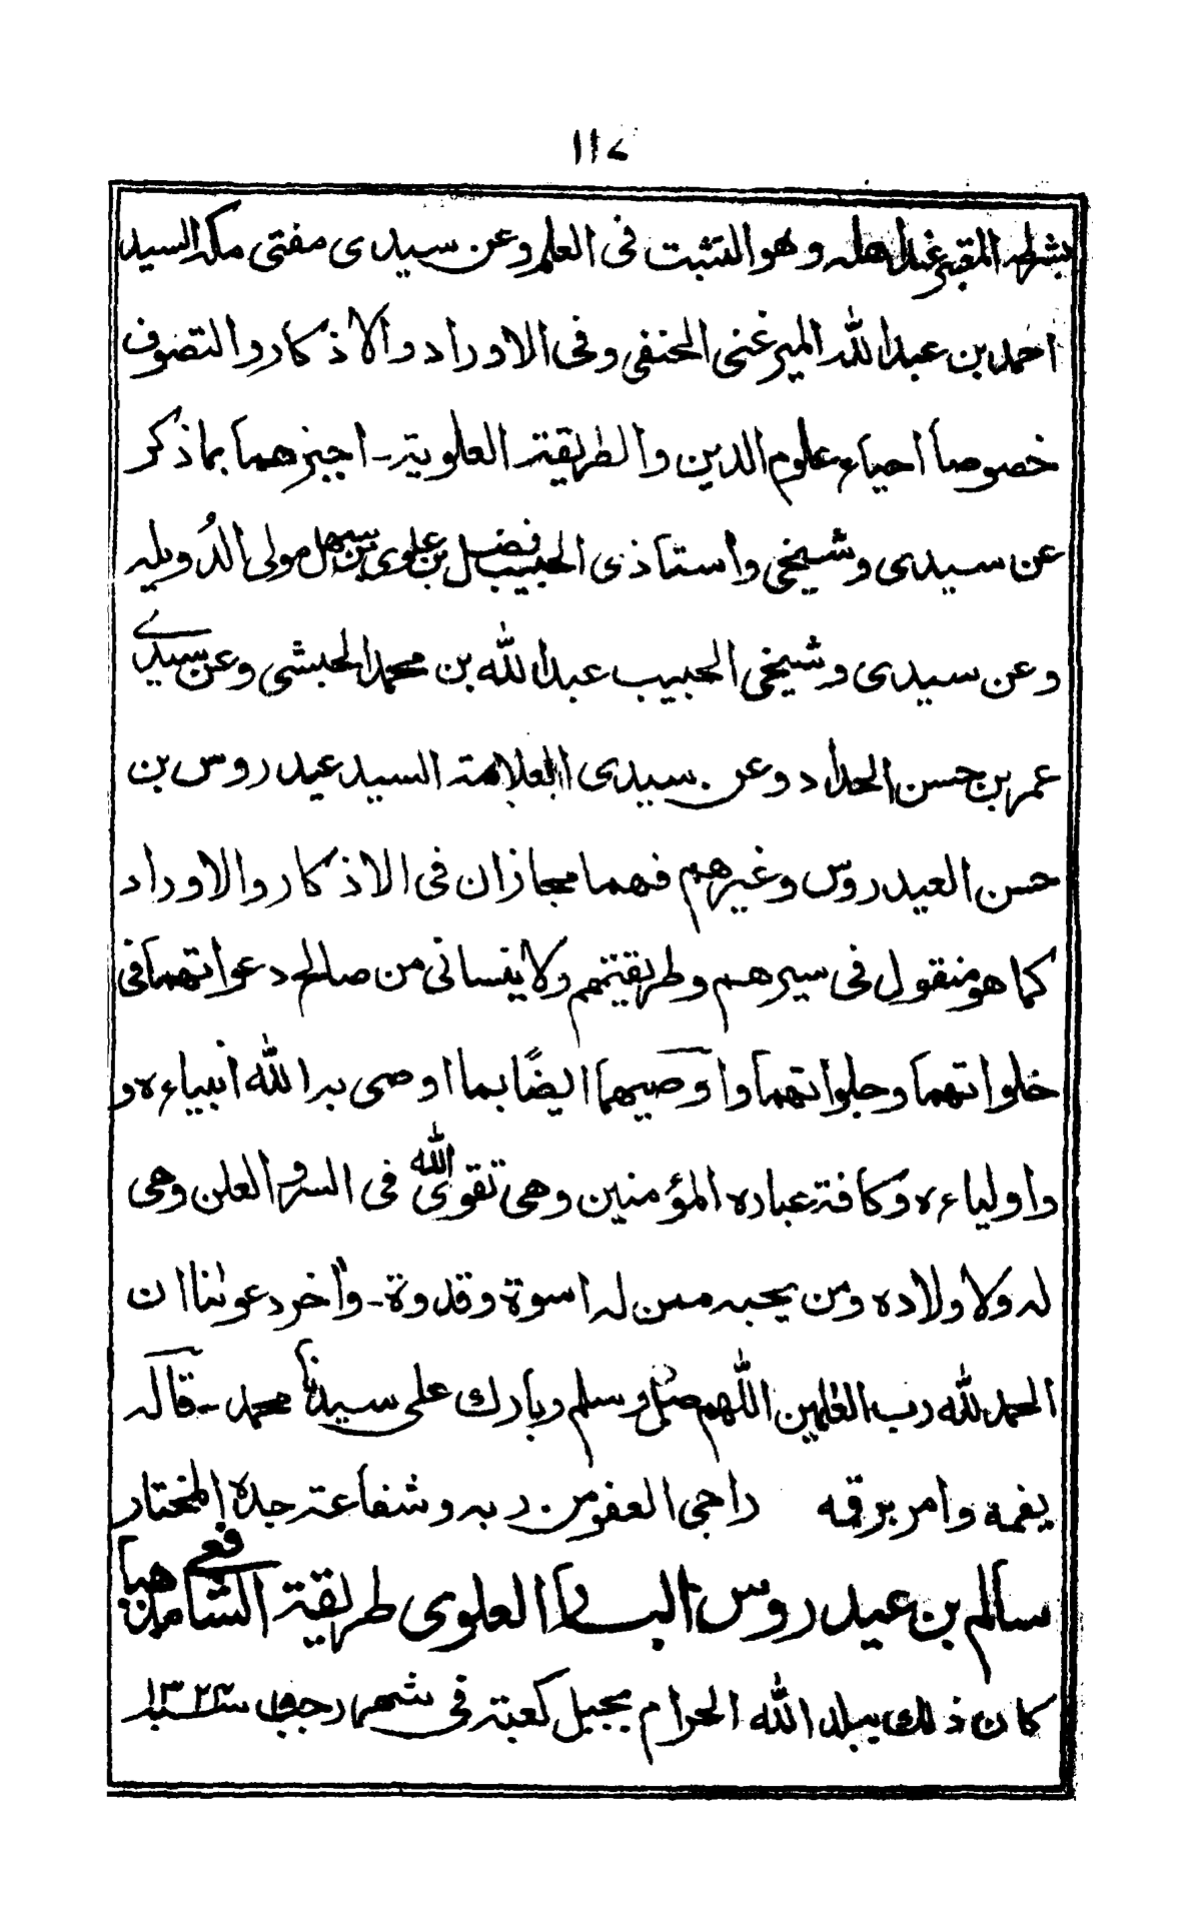 ١١٧
بشرطه المقبر عند اهله وهو التثبت فى العلم وعن سيدى مفتى مكه السيد
احمد بن عبد الله الميرغنى الحنفى وفى الاوراد والاذكار والتصوف
خصوصاً احياء علوم الدين والطريقة العلوية - اجيزهما بما ذكر
عن سيدى وشيخى واستاذى الحبيب فضل بن علوى بن سهل مولى الدُويله
وعن سيدى وشيخى الحبيب عبد الله بن محمد الحبشى وعن سيدي
عمر بن حسن الحداد وعن سيدى العلامة السيد عيدروس بن
حسن العيدروس وغيرهم فهما مجازان فى الاذكار والاوراد
كما هو منقول فى سيرهم وطريقتهم ولا ينسانى من صالح دعواتهما فى
خلواتهما وجلواتهما واوصيهما ايضًا بما اوصى به الله أنبياءه و
واولياءه وكافة عباده المؤمنين وهى تقوى الله فى السر والعلن وهى
له ولاولاده ومن يحبه ممن له اسوة وقدوة - وآخر دعوٰنا ان
الحمد لله رب العٰلمين اللهم صل وسلم وبارك على سيدنا محمد - قاله
بفمه وامر برقمه راجى العفو من ربه وشفاعة جده المختار
سالم بن عيدروس البار العلوى طريقة الشافعى مذهباً
كان ذلك ببلد الله الحرام بجبل كعبة فى شهر رجب ١٣٢٣ سنه